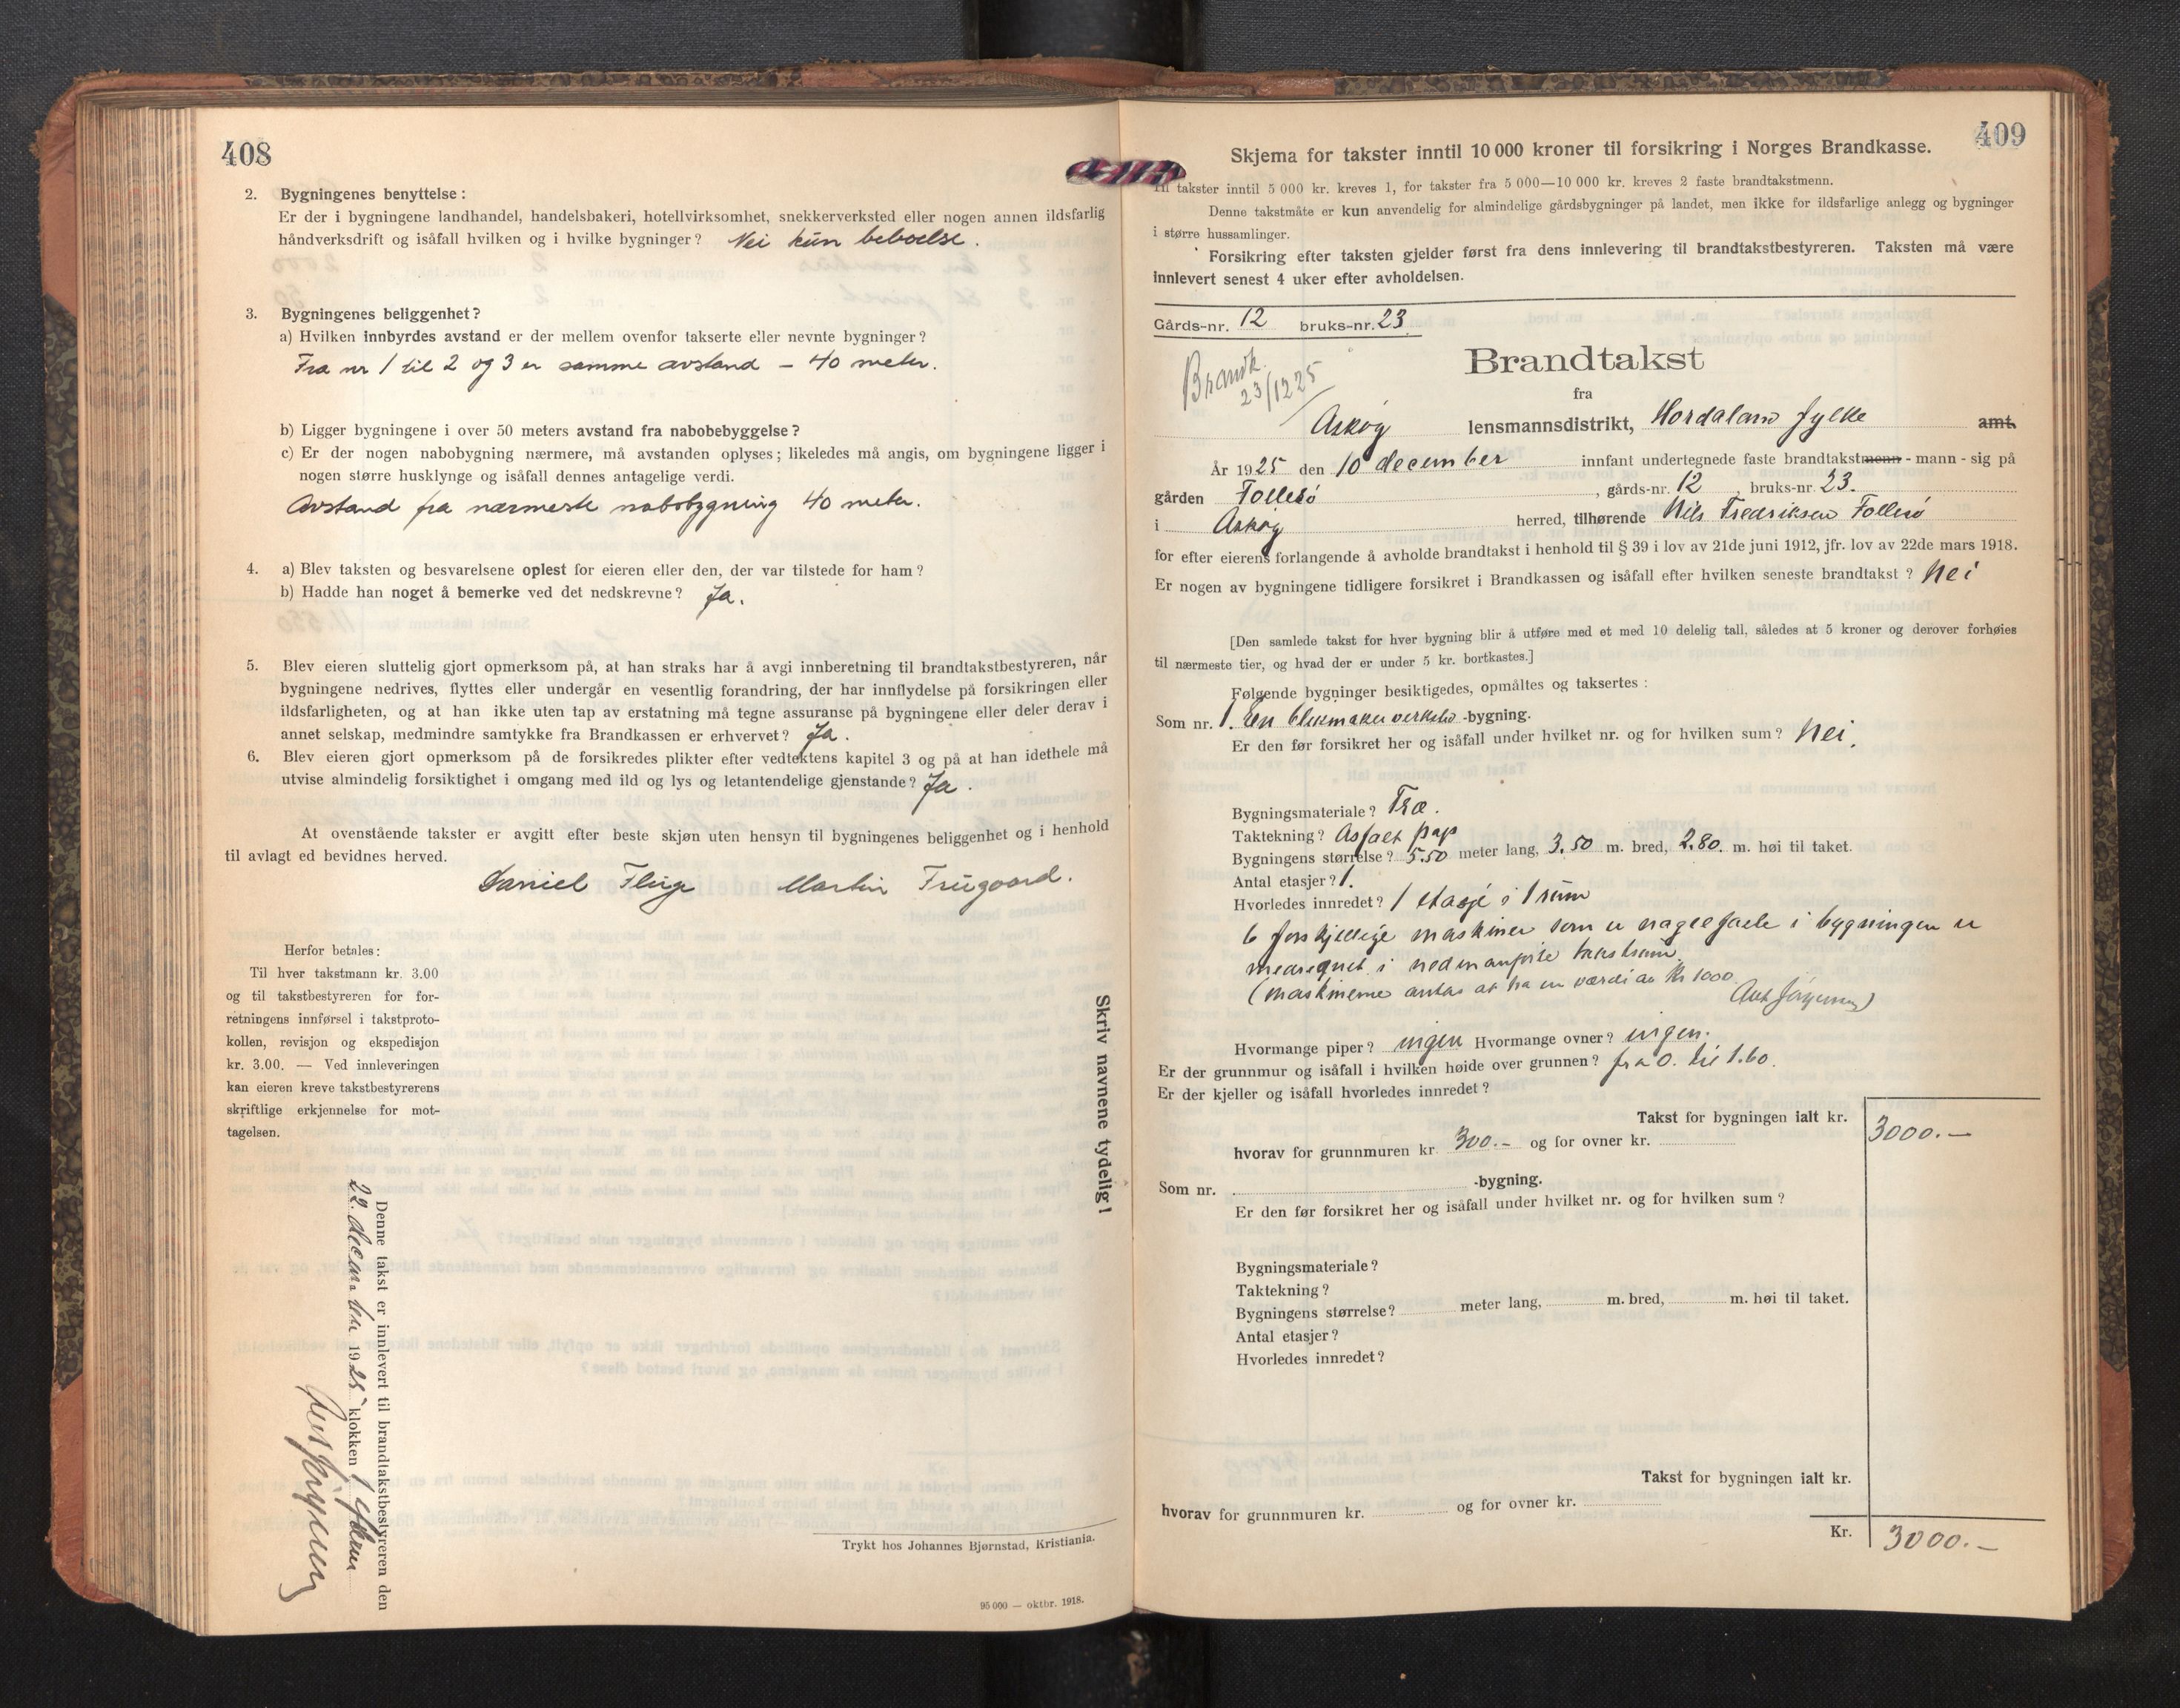 408
2. Bygningenes benyttelse:
Er der i bygningene landhandel, handelsbakeri, hotellvirksomhet, snekkerverksted eller nogen annen ildsfarlig
håndverksdrift og isåfall hvilken og i hvilke bygninger? Nei kun beboelse.
3. Bygningenes beliggenhet?
a) Hvilken innbyrdes avstand er der mellem ovenfor takserte eller nevnte bygninger?
Fra nr 1 til 2 og 3 er samme avstand – 40 meter.
b) Ligger bygningene i over 50 meters avstand fra nabobebyggelse?
c) Er der nogen nabobygning nærmere, må avstanden oplyses; likeledes må angis, om bygningene ligger i
nogen større husklynge og isåfall dennes antagelige verdi.
Avstand fra nærmeste nabobygning 40 meter.
4. a) Blev taksten og besvarelsene oplest for eieren eller den, der var tilstede for ham?
b) Hadde han noget å bemerke ved det nedskrevne? Ja.
5. Blev eieren sluttelig gjort opmerksom på, at han straks har å avgi innberetning til brandtakstbestyreren, når
bygningene nedrives, flyttes eller undergår en vesentlig forandring, der har innflydelse på forsikringen eller
ildsfarligheten, og at han ikke uten tap av erstatning må tegne assuranse på bygningene eller deler derav i
annet selskap, medmindre samtykke fra Brandkassen er erhvervet? Ja.
6. Blev eieren gjort opmerksom på de forsikredes plikter efter vedtektens kapitel 3 og på at han idethele må
utvise almindelig forsiktighet i omgang med ild og lys og letantendelige gjenstande? Ja.
At ovenstående takster er avgitt efter beste skjøn uten hensyn til bygningenes beliggenhet og i henhold
til avlagt ed bevidnes herved.
Daniel Fluge Martin Trugaard.
Herfor betales:
Til hver takstmann kr. 3.00
og til takstbestyreren for for-
retningens innførsel i takstproto-
kollen, revisjon og ekspedisjon
kr. 3.00. — Ved innleveringen
kan eieren kreve takstbestyrerens
skriftlige erkjennelse for mot-
tagelsen.
Skriv navnene tydelig!
Denne takst er innlevert til brandtakstbestyreren den
22. december 1925 klokken 1 efterm
Trykt hos Johannes Bjørnstad, Kristiania.
95 000 — oktbr. 1918.
409
Skjema for takster inntil 10 000 kroner til forsikring i Norges Brandkasse.
Til takster inntil 5 000 kr. kreves 1, for takster fra 5 000—10 000 kr. kreves 2 faste brandtakstmenn.
Denne takstmåte er kun anvendelig for almindelige gårdsbygninger på landet, men ikke for ildsfarlige anlegg og bygninger
i større hussamlinger.
Forsikring efter taksten gjelder først fra dens innlevering til brandtakstbestyreren. Taksten må være
innlevert senest 4 uker efter avholdelsen.
Gårds-nr. 12 bruks-nr. 23
Brandk. 23/12 25
Brandtakst
fra
Askøy lensmannsdistrikt, Hordaland fylke amt.
År 1925 den 10 december innfant undertegnede faste brandtakstmenn - mann - sig på
gården Follesö, gårds-nr. 12, bruks-nr. 23.
i Askøy herred, tilhørende Nils Fredriksen Follesö
for efter eierens forlangende å avholde brandtakst i henhold til § 39 i lov av 21de juni 1912, jfr. lov av 22de mars 1918.
Er nogen av bygningene tidligere forsikret i Brandkassen og isåfall efter hvilken seneste brandtakst? Nei
[Den samlede takst for hver bygning blir å utføre med et med 10 delelig tall, således at 5 kroner og derover forhøies
til nærmeste tier, og hvad der er under 5 kr. bortkastes.]
Følgende bygninger besiktigedes, opmåltes og taksertes:
Som nr. 1. En blikmaker verksted -bygning.
Er den før forsikret her og isåfall under hvilket nr. og for hvilken sum? Nei.
Bygningsmateriale? Træ.
Taktekning? Asfalt pap
Bygningens størrelse? 5.50 meter lang, 3.50 m. bred, 2.80. m. høi til taket.
Antal etasjer? 1.
Hvorledes innredet? 1 etasje i 1 rum
6 forskjellige maskiner som er naglefaste i bygningen er
medregnet i nedenanførte takstsum.
(maskinerne antas at ha en værdi av Kr 1000.
Hvormange piper? ingen Hvormange ovner? ingen.
Er der grunnmur og isåfall i hvilken høide over grunnen? fra 0. til 1.60.
Er der kjeller og isåfall hvorledes innredet?
Takst for bygningen ialt kr. 3000.—
hvorav for grunnmuren kr. 300.— og for ovner kr.
Som nr. -bygning.
Er den før forsikret her og isåfall under hvilket nr. og for hvilken sum?
Bygningsmateriale?
Taktekning?
Bygningens størrelse? meter lang, m. bred, m. høi til taket.
Antal etasjer?
Hvorledes innredet?
Takst for bygningen ialt kr.
hvorav for grunnmuren kr. og for ovner kr.
Kr. 3000.—